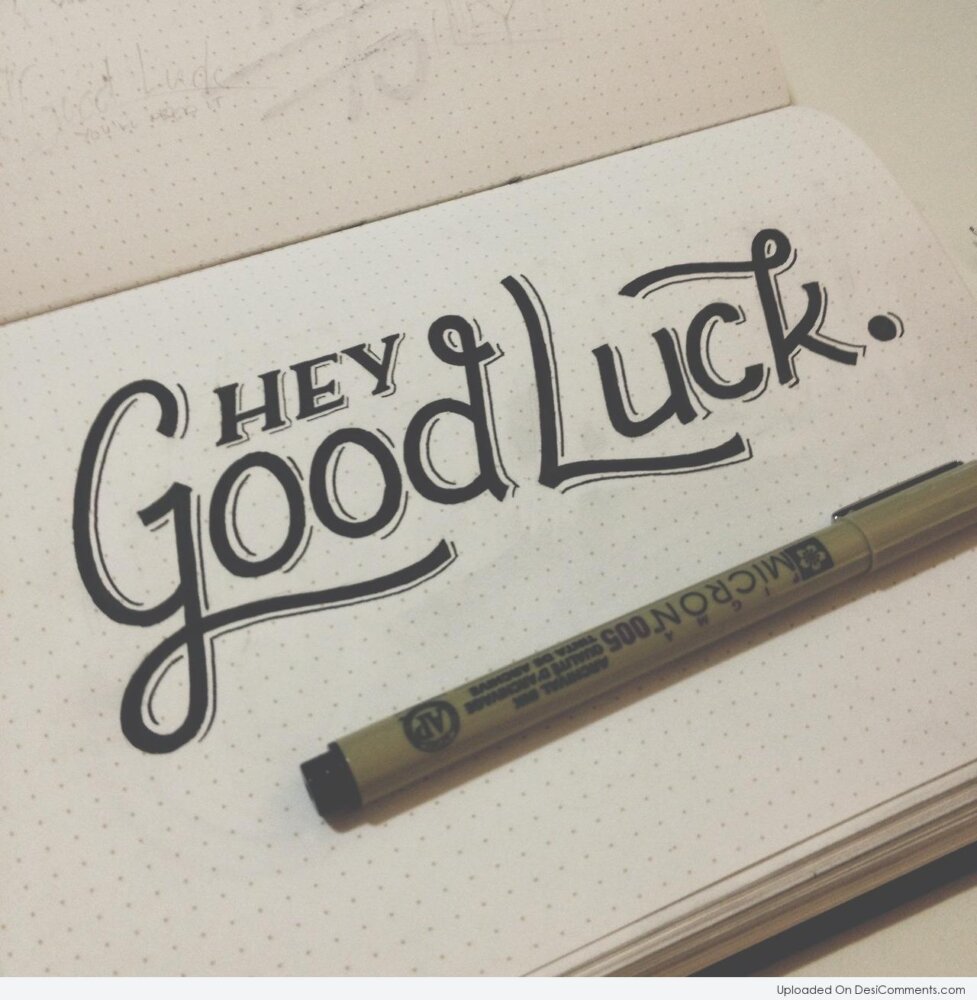 HEY
Good Luck.
Good Luck
HEY
MICRON 005
ARCHIVAL INK
QUALITÉ D'ARCHIVAGE
TINTA DE ARCHIVO
AP
Uploaded On DesiComments.com